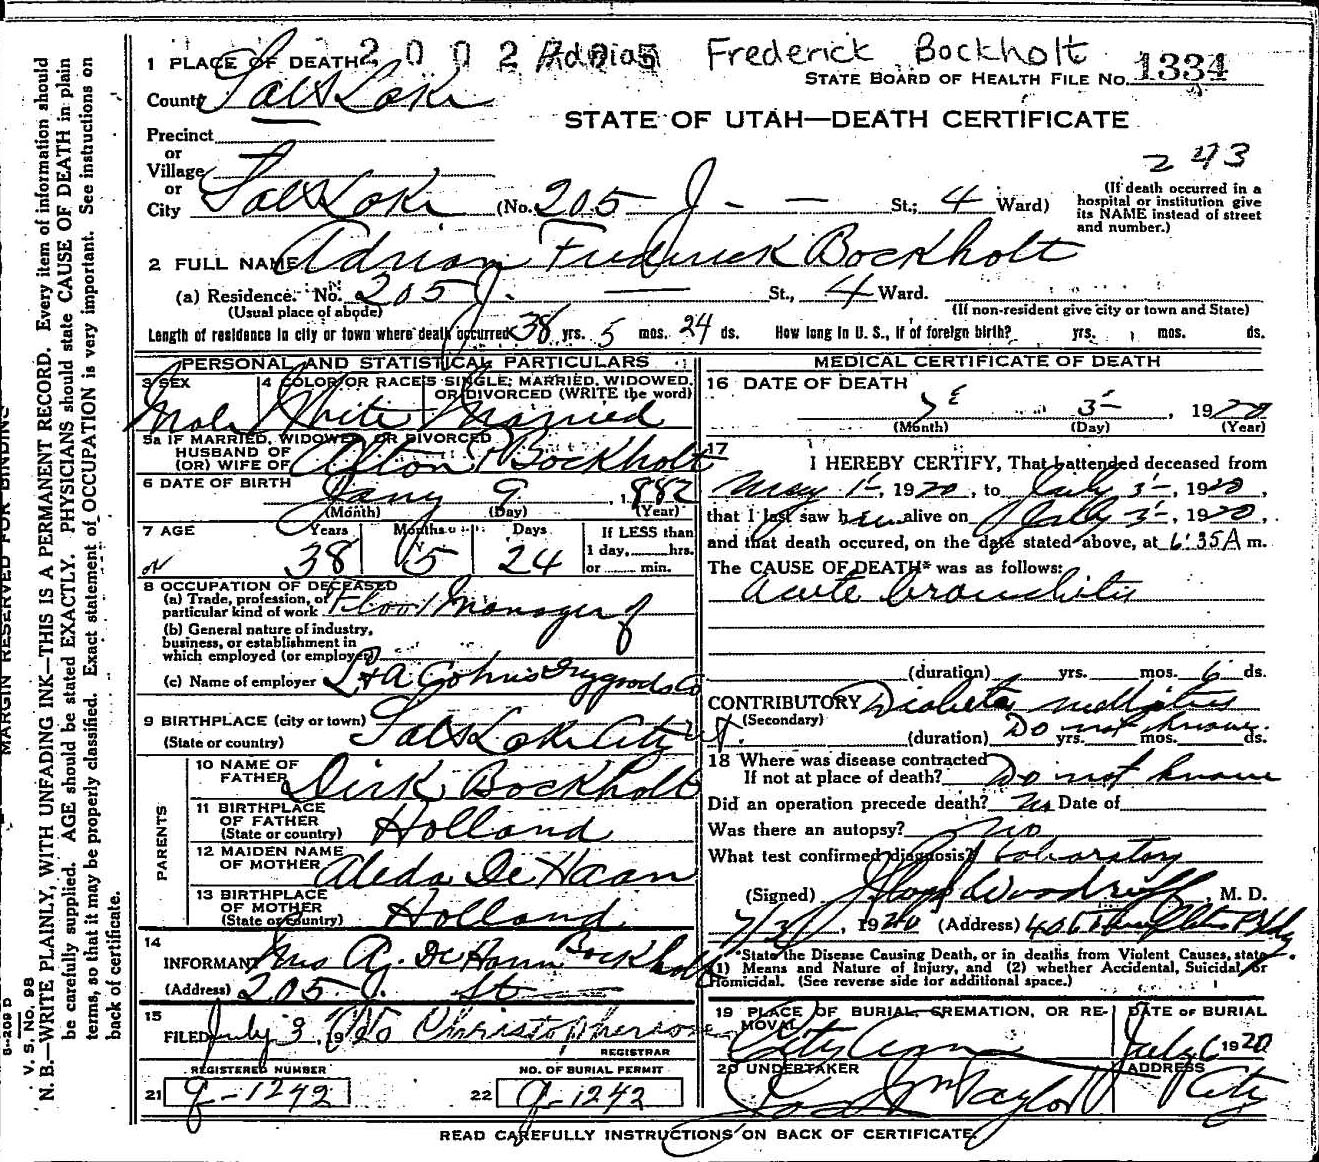 2002 Adrian Frederick Bockholt
1 PLACE OF DEATH
STATE BOARD OF HEALTH FILE No. 1334
County Salt Lake
STATE OF UTAH—DEATH CERTIFICATE
Precinct
or
Village
or
City Salt Lake (No. 205 J - — St.; 4 Ward)
273
(If death occurred in a
hospital or institution give
its NAME instead of street
and number.)
2 FULL NAME Adrian Frederick Bockholt
(a) Residence. No. 205 J. — St., 4 Ward.
(Usual place of abode) (If non-resident give city or town and State)
Length of residence in city or town where death occurred 38 yrs. 5 mos. 24 ds. How long in U. S., if of foreign birth? yrs. mos. ds.
PERSONAL AND STATISTICAL PARTICULARS
3 SEX 4 COLOR OR RACE 5 SINGLE, MARRIED, WIDOWED,
OR DIVORCED (WRITE the word)
Male White Married
5a IF MARRIED, WIDOWED OR DIVORCED
HUSBAND OF
(OR) WIFE OF Afton Bockholt
6 DATE OF BIRTH Jany 9, 1882
(Month) (Day) (Year)
7 AGE Years Months Days If LESS than
38 5 24 1 day, hrs.
or min.
8 OCCUPATION OF DECEASED
(a) Trade, profession, or
particular kind of work Floor Manager of
(b) General nature of industry,
business, or establishment in
which employed (or employer)
(c) Name of employer L & A Cohns Drygoods Co
9 BIRTHPLACE (city or town) Salt Lake City Ut.
(State or country)
PARENTS
10 NAME OF
FATHER Dirk Bockholt
11 BIRTHPLACE
OF FATHER
(State or country) Holland
12 MAIDEN NAME
OF MOTHER Aleda De Haan
13 BIRTHPLACE
OF MOTHER
(State or country) Holland
14
INFORMANT Mrs A. De Haan Bockholt
(Address) 205 J. St
15
FILED July 3, 1920 Christopherson
REGISTRAR
REGISTERED NUMBER NO. OF BURIAL PERMIT
21 9-1242 22 9-1242
MEDICAL CERTIFICATE OF DEATH
16 DATE OF DEATH
7 3, 1920
(Month) (Day) (Year)
17
I HEREBY CERTIFY, That I attended deceased from
May 1, 1920, to July 3, 1920,
that I last saw him alive on July 3, 1920,
and that death occured, on the date stated above, at 6:35 A m.
The CAUSE OF DEATH* was as follows:
acute bronchitis
(duration) yrs. mos. 6 ds.
CONTRIBUTORY Diabetes mellitus
(Secondary)
(duration) Do not know yrs. mos. ds.
18 Where was disease contracted
If not at place of death? Do not know
Did an operation precede death? No Date of
Was there an autopsy? No
What test confirmed diagnosis? Laboratory
(Signed) Woodruff M. D.
7/3, 1920 (Address) 406
*State the Disease Causing Death, or in deaths from Violent Causes, state
(1) Means and Nature of Injury, and (2) whether Accidental, Suicidal, or
Homicidal. (See reverse side for additional space.)
19 PLACE OF BURIAL, CREMATION, OR RE-
MOVAL
DATE OF BURIAL
City Cem July 6 1920
20 UNDERTAKER ADDRESS
Taylor City
READ CAREFULLY INSTRUCTIONS ON BACK OF CERTIFICATE.
MARGIN RESERVED FOR BINDING
V. S. No. 98
N. B.—WRITE PLAINLY, WITH UNFADING INK—THIS IS A PERMANENT RECORD. Every item of information should
be carefully supplied. AGE should be stated EXACTLY. PHYSICIANS should state CAUSE OF DEATH in plain
terms, so that it may be properly classified. Exact statement of OCCUPATION is very important. See instructions on
back of certificate.